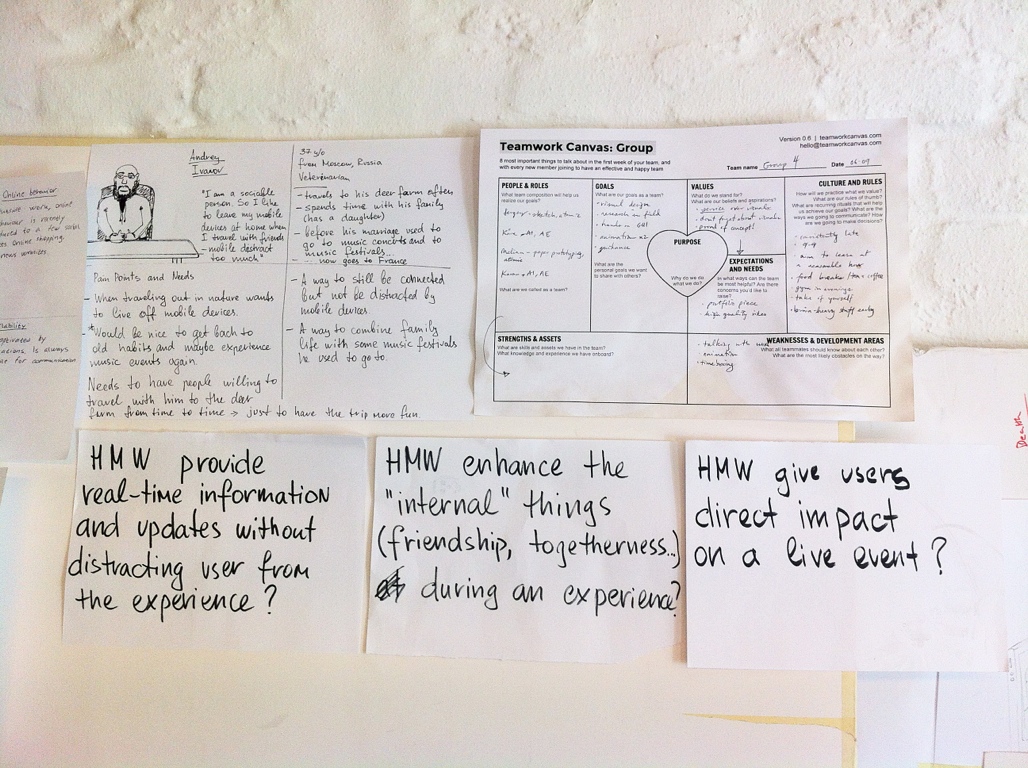 Online behavior
Andrey
Ivanov
"I am a sociable
person. So I like
to leave my mobile
devices at home when
I travel with friends
- mobile distract
too much"
37 y/o
from Moscow, Russia
Veterinarian
- travels to his deer farm often
- spends time with his family
(has a daughter)
- before his marriage used to
go to music concerts and to
music festivals...
... now goes to France
Pain Points and Needs
- When traveling out in nature wants
to live off mobile devices.
- Would be nice to get back to
old habits and maybe experience
music events again.
Needs to have people willing to
travel with him to the deer
farm from time to time → just to have the trip more fun.
- A way to still be connected
but not be distracted by
mobile devices
- A way to combine family
life with some music festivals
he used to go to.
Teamwork Canvas: Group
8 most important things to talk about in the first week of your team, and
with every new member joining to have an effective and happy team
Version 0.6 | teamworkcanvas.com
hello@teamworkcanvas.com
Team name Group 4 Date
PEOPLE & ROLES
What team composition will help us
realize our goals?
What are we called as a team?
GOALS
What are our goals as a team?
- visual design
- research in field
What are the
personal goals we want
to share with others?
VALUES
What do we stand for?
What are our beliefs and aspirations?
PURPOSE
Why do we do
what we do?
EXPECTATIONS
AND NEEDS
In what ways can the team
be most helpful? Are there
concerns you'd like to
raise?
- portfolio piece
- high quality video
CULTURE AND RULES
How will we practice what we value?
What are our rules?
What are recurring rituals that will help
us achieve our goals? What are the
ways we going to communicate? How
do we going to make decisions?
- food breaks / tea + coffee
- gym in evenings
STRENGTHS & ASSETS
What are skills and assets we have in the team?
What knowledge and experience we have onboard?
WEAKNESSES & DEVELOPMENT AREAS
What all teammates should know about each other?
What are the most likely obstacles on the way?
Death
HMW provide
real-time information
and updates without
distracting user from
the experience?
HMW enhance the
"internal" things
(friendship, togetherness..)
during an experience?
HMW give users
direct impact
on a live event?